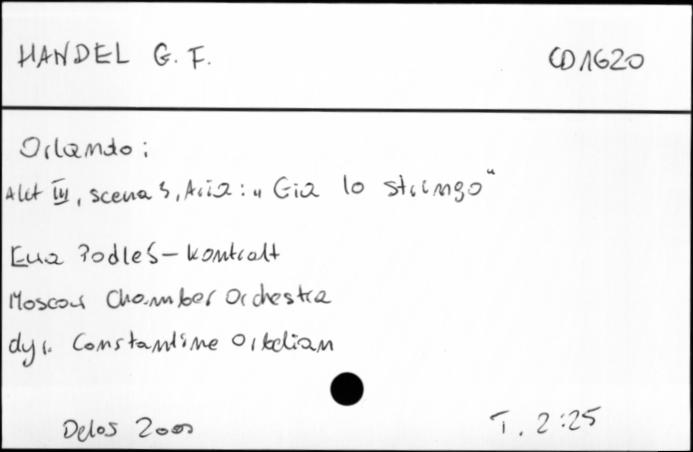 HANDEL G. F. CD1620
Orlando:
Akt III, scena 3, Aria: „Gia lo stringo"
Ewa Podleś – kontralt
Moscow Chamber Orchestra
dyr. Constantine Orbelian
Delos 2000 T. 2:25